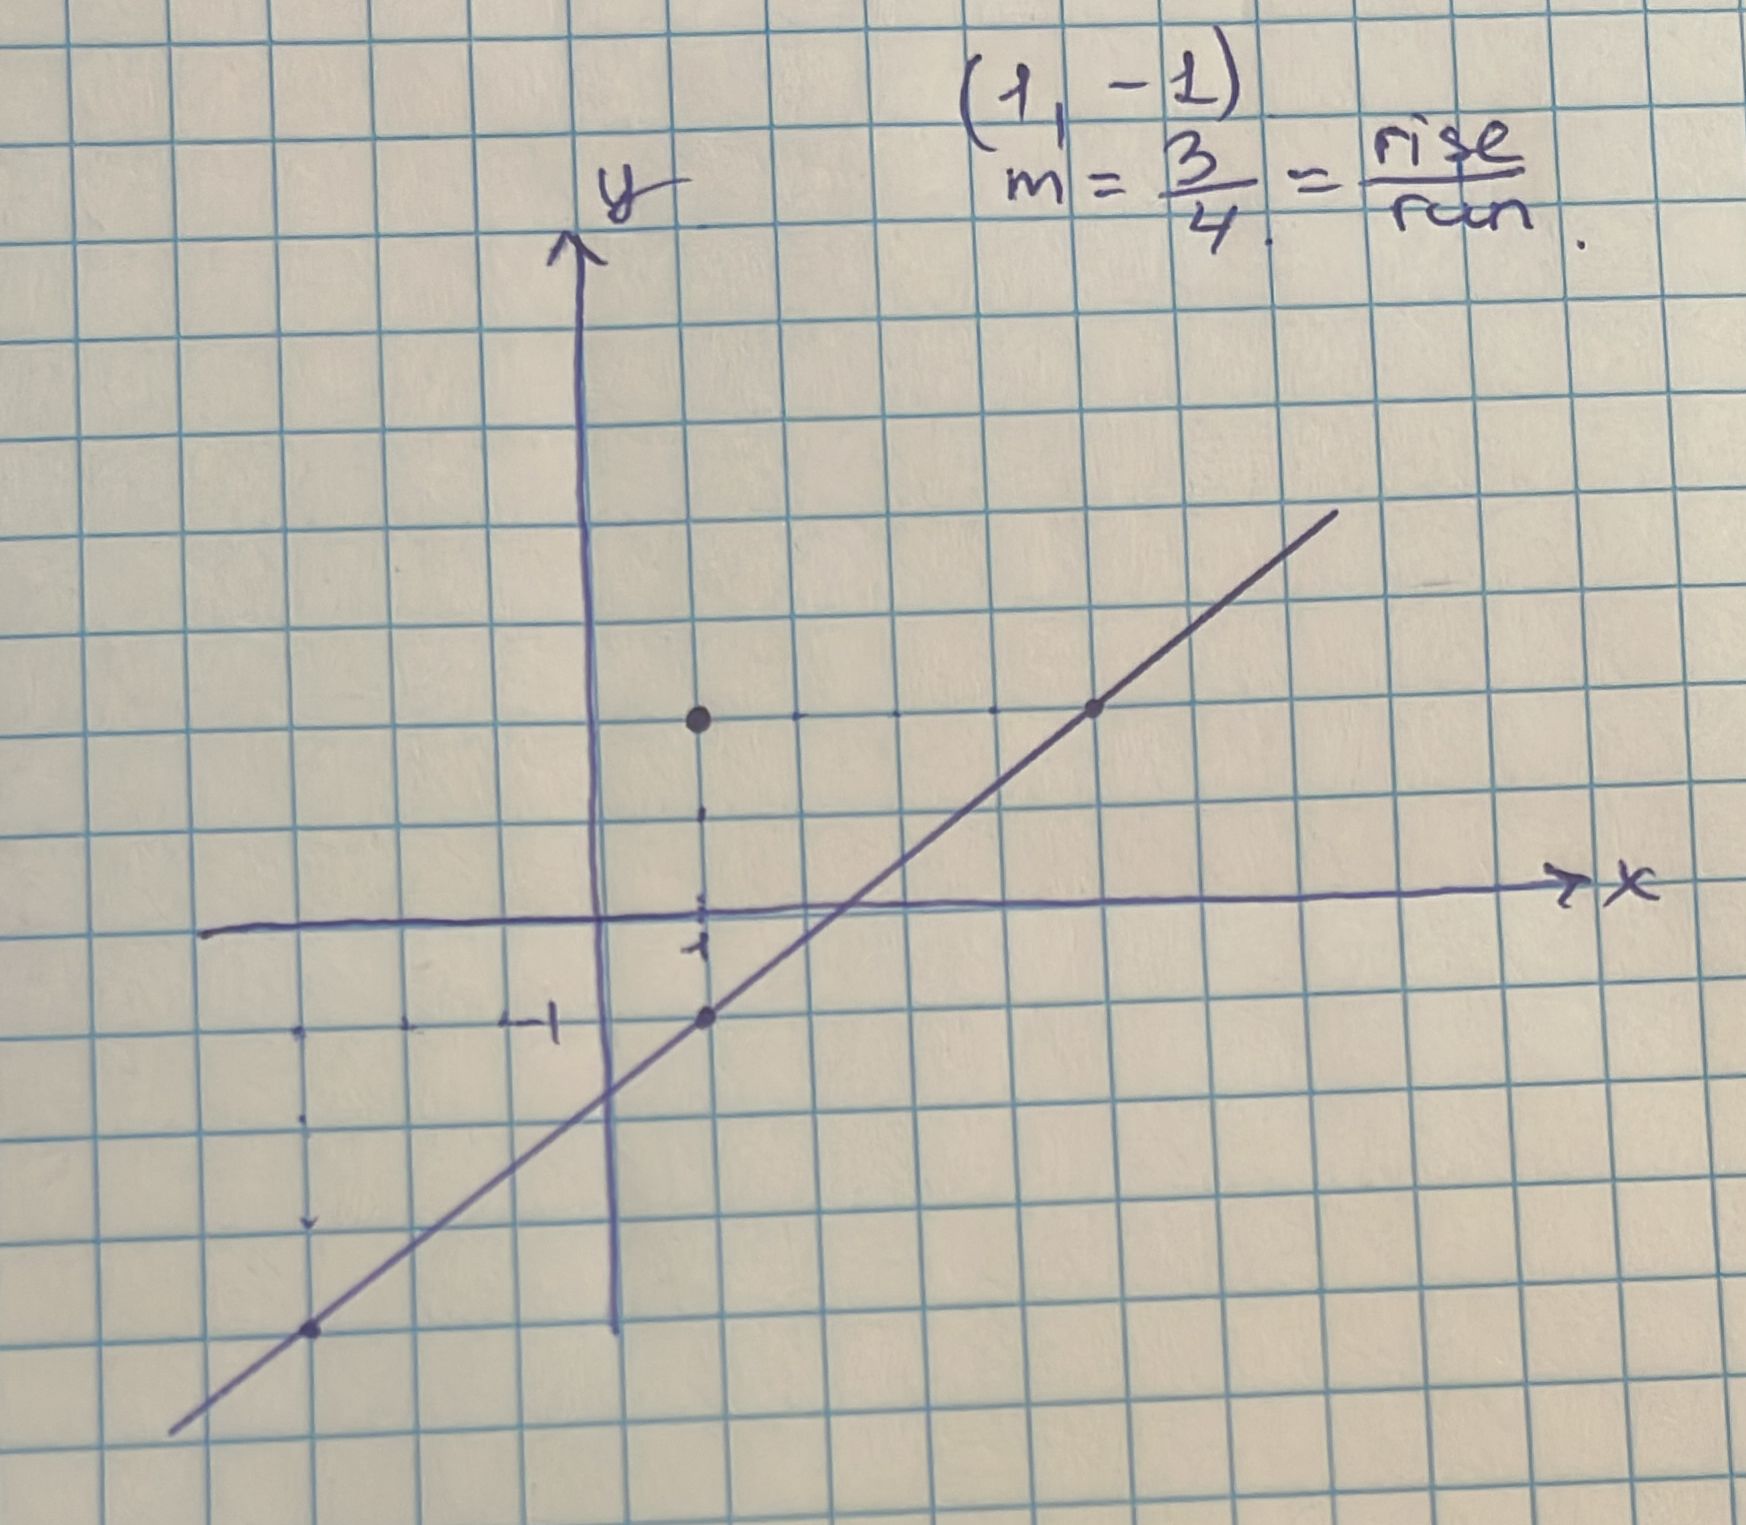 (1, -1)
m = 3/4 = rise/run.
y
x
1
-1